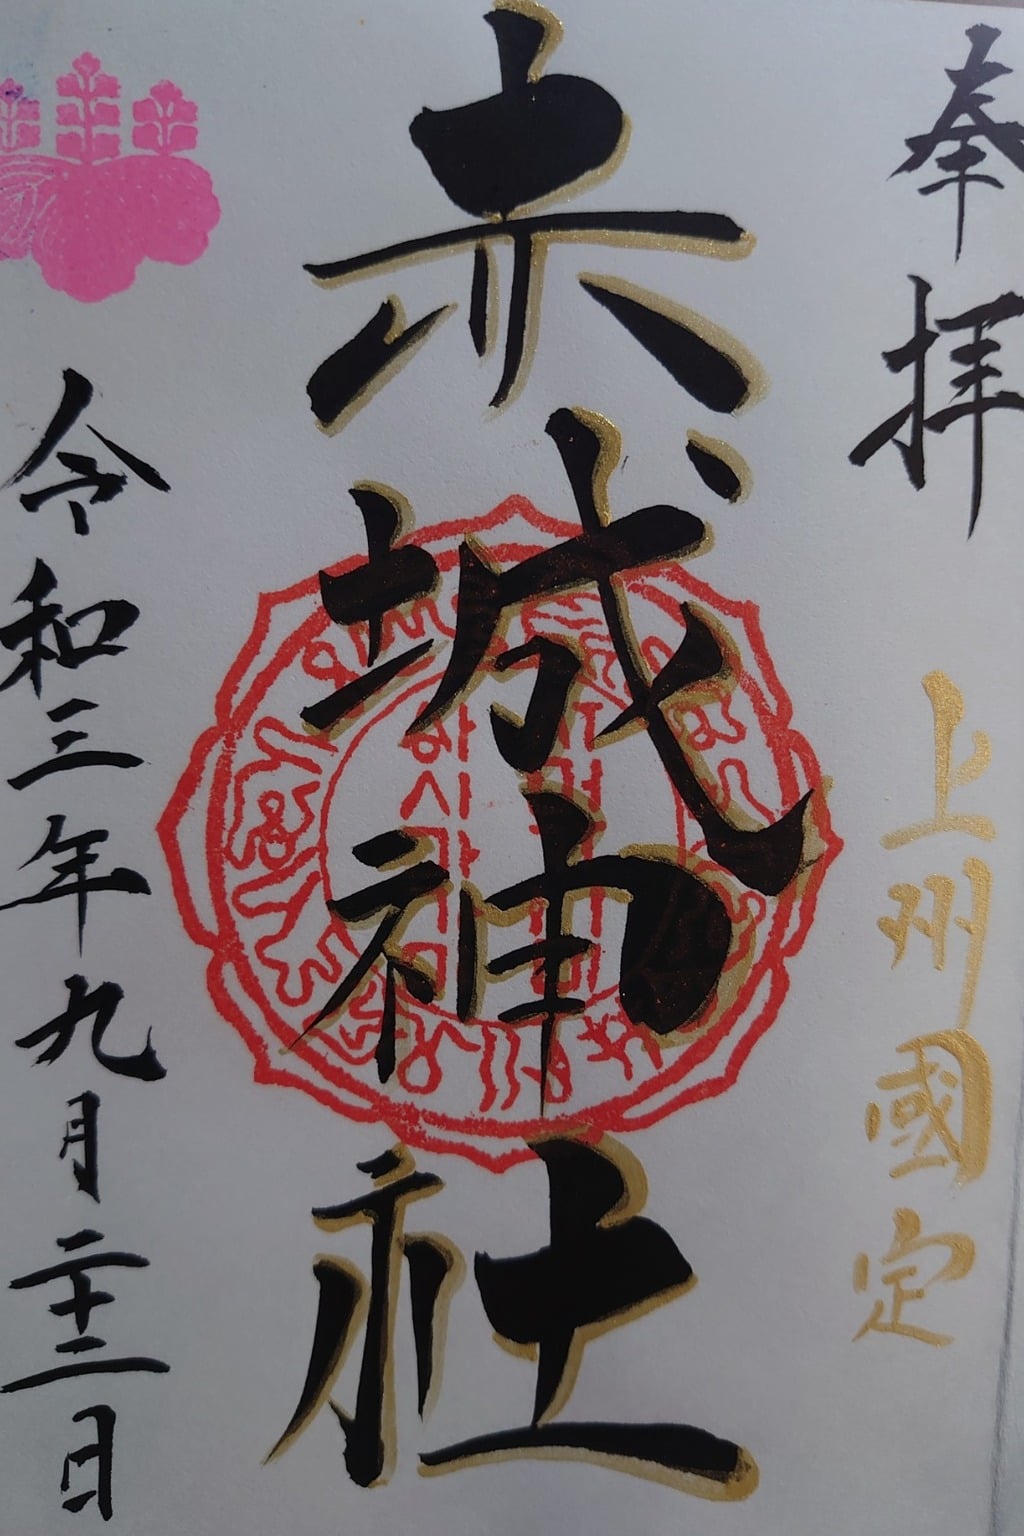 奉拝
上州國定
赤城神社
令和三年九月二十二日